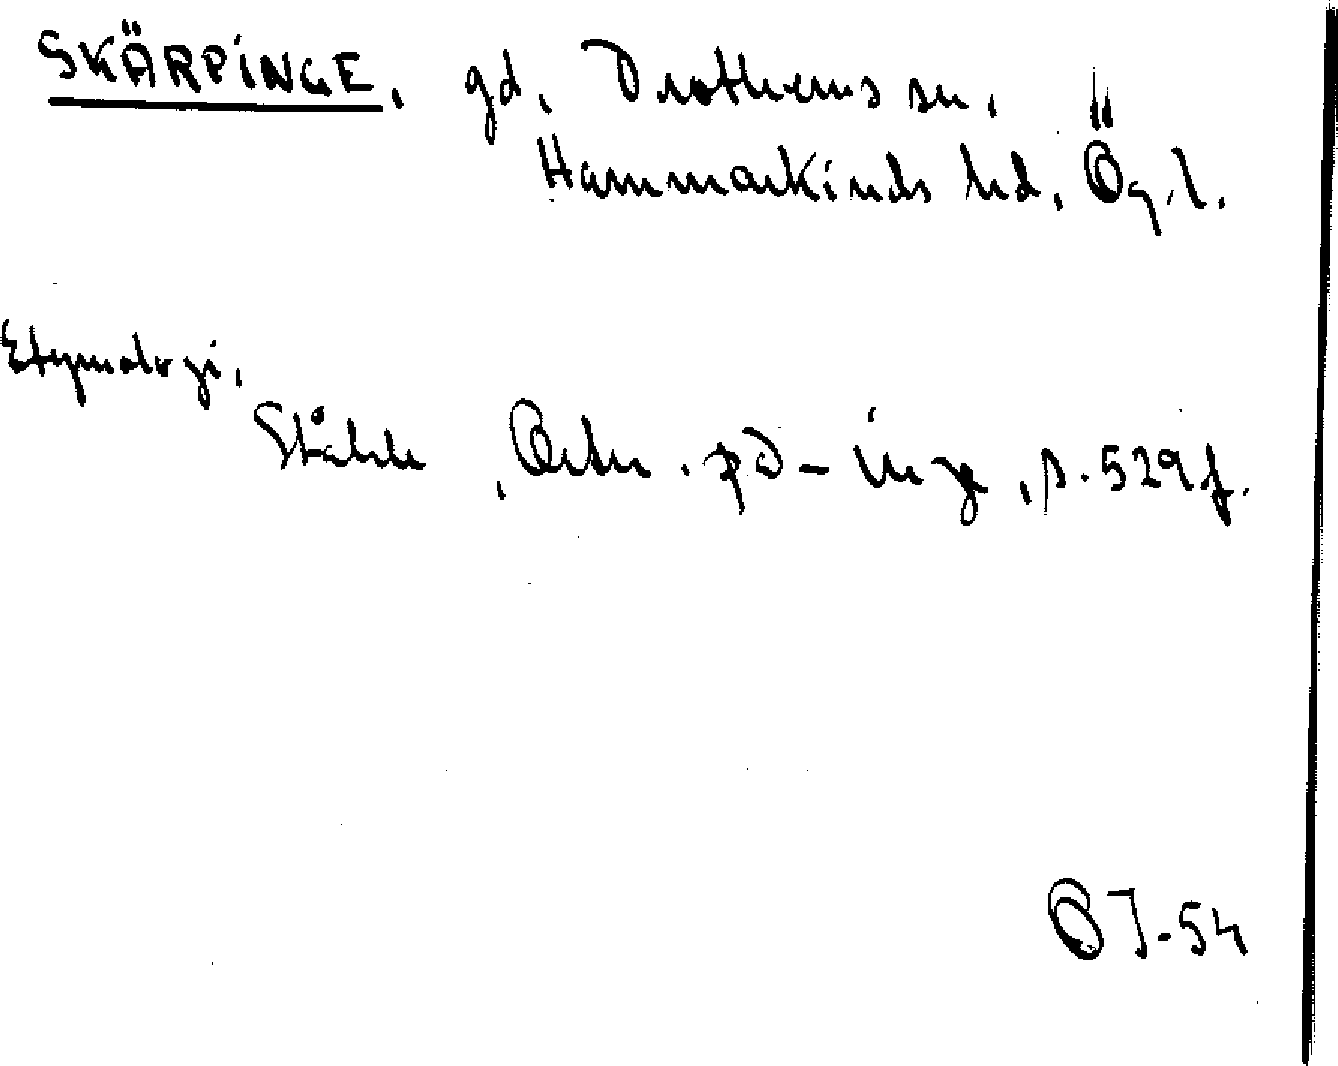 SKÄRPINGE, gd, Drothems sn,
Hammarkinds hd, Ög. l.
Etymologi,
Ståhle, Ortn. på -inge, s. 529 f.
OJ-54